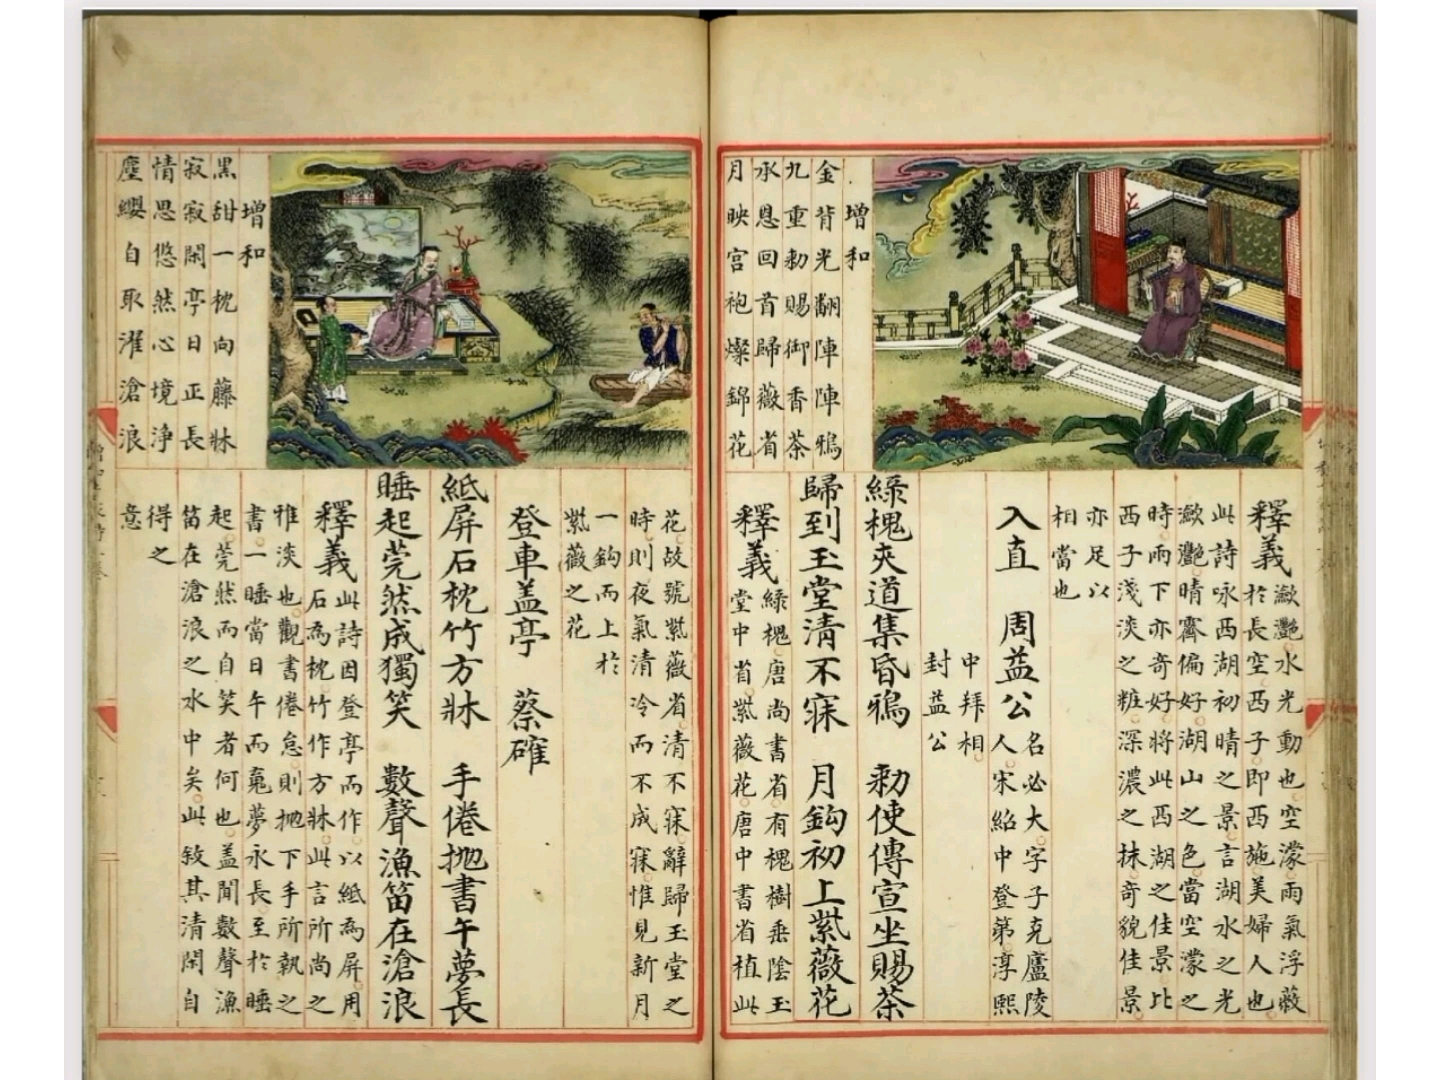 增和
金背光翻陣陣鴉
九重勅賜御香茶
承恩回首歸薇省
月映宮袍燦錦花
釋義
瀲灩水光動也空濛雨氣浮薇
於長空西子即西施美婦人也
此詩咏西湖初晴之景言湖水之光
瀲灩晴霽偏好湖山之色當空濛之
時雨下亦奇好將此西湖之佳景比
西子淺淡之粧深濃之抹奇貌佳景
亦足以
相當也
入直 周益公
名必大字子充廬陵
人宋紹中登第淳熙
中拜相
封益公
綠槐夾道集昏鴉 勅使傳宣坐賜茶
歸到玉堂清不寐 月鈎初上紫薇花
釋義
綠槐唐尚書省有槐樹垂陰玉
堂中省紫薇花唐中書省植此
增和
黑甜一枕向藤牀
寂寂閑亭日正長
情思悠然心境淨
塵纓自取濯滄浪
花故號紫薇省清不寐辭歸玉堂之
時則夜氣清冷而不成寐惟見新月
一鈎而上於
紫薇之花
登車蓋亭 蔡確
紙屏石枕竹方牀 手倦拋書午夢長
睡起莞然成獨笑 數聲漁笛在滄浪
釋義
此詩因登亭而作以紙為屏用
石為枕竹作方牀此言所尚之
雅淡也觀書倦怠則拋下手所執之
書一睡當日午而㝠夢永長至於睡
起莞然而自笑者何也蓋聞數聲漁
笛在滄浪之水中矣此敘其清閑自
得之
意